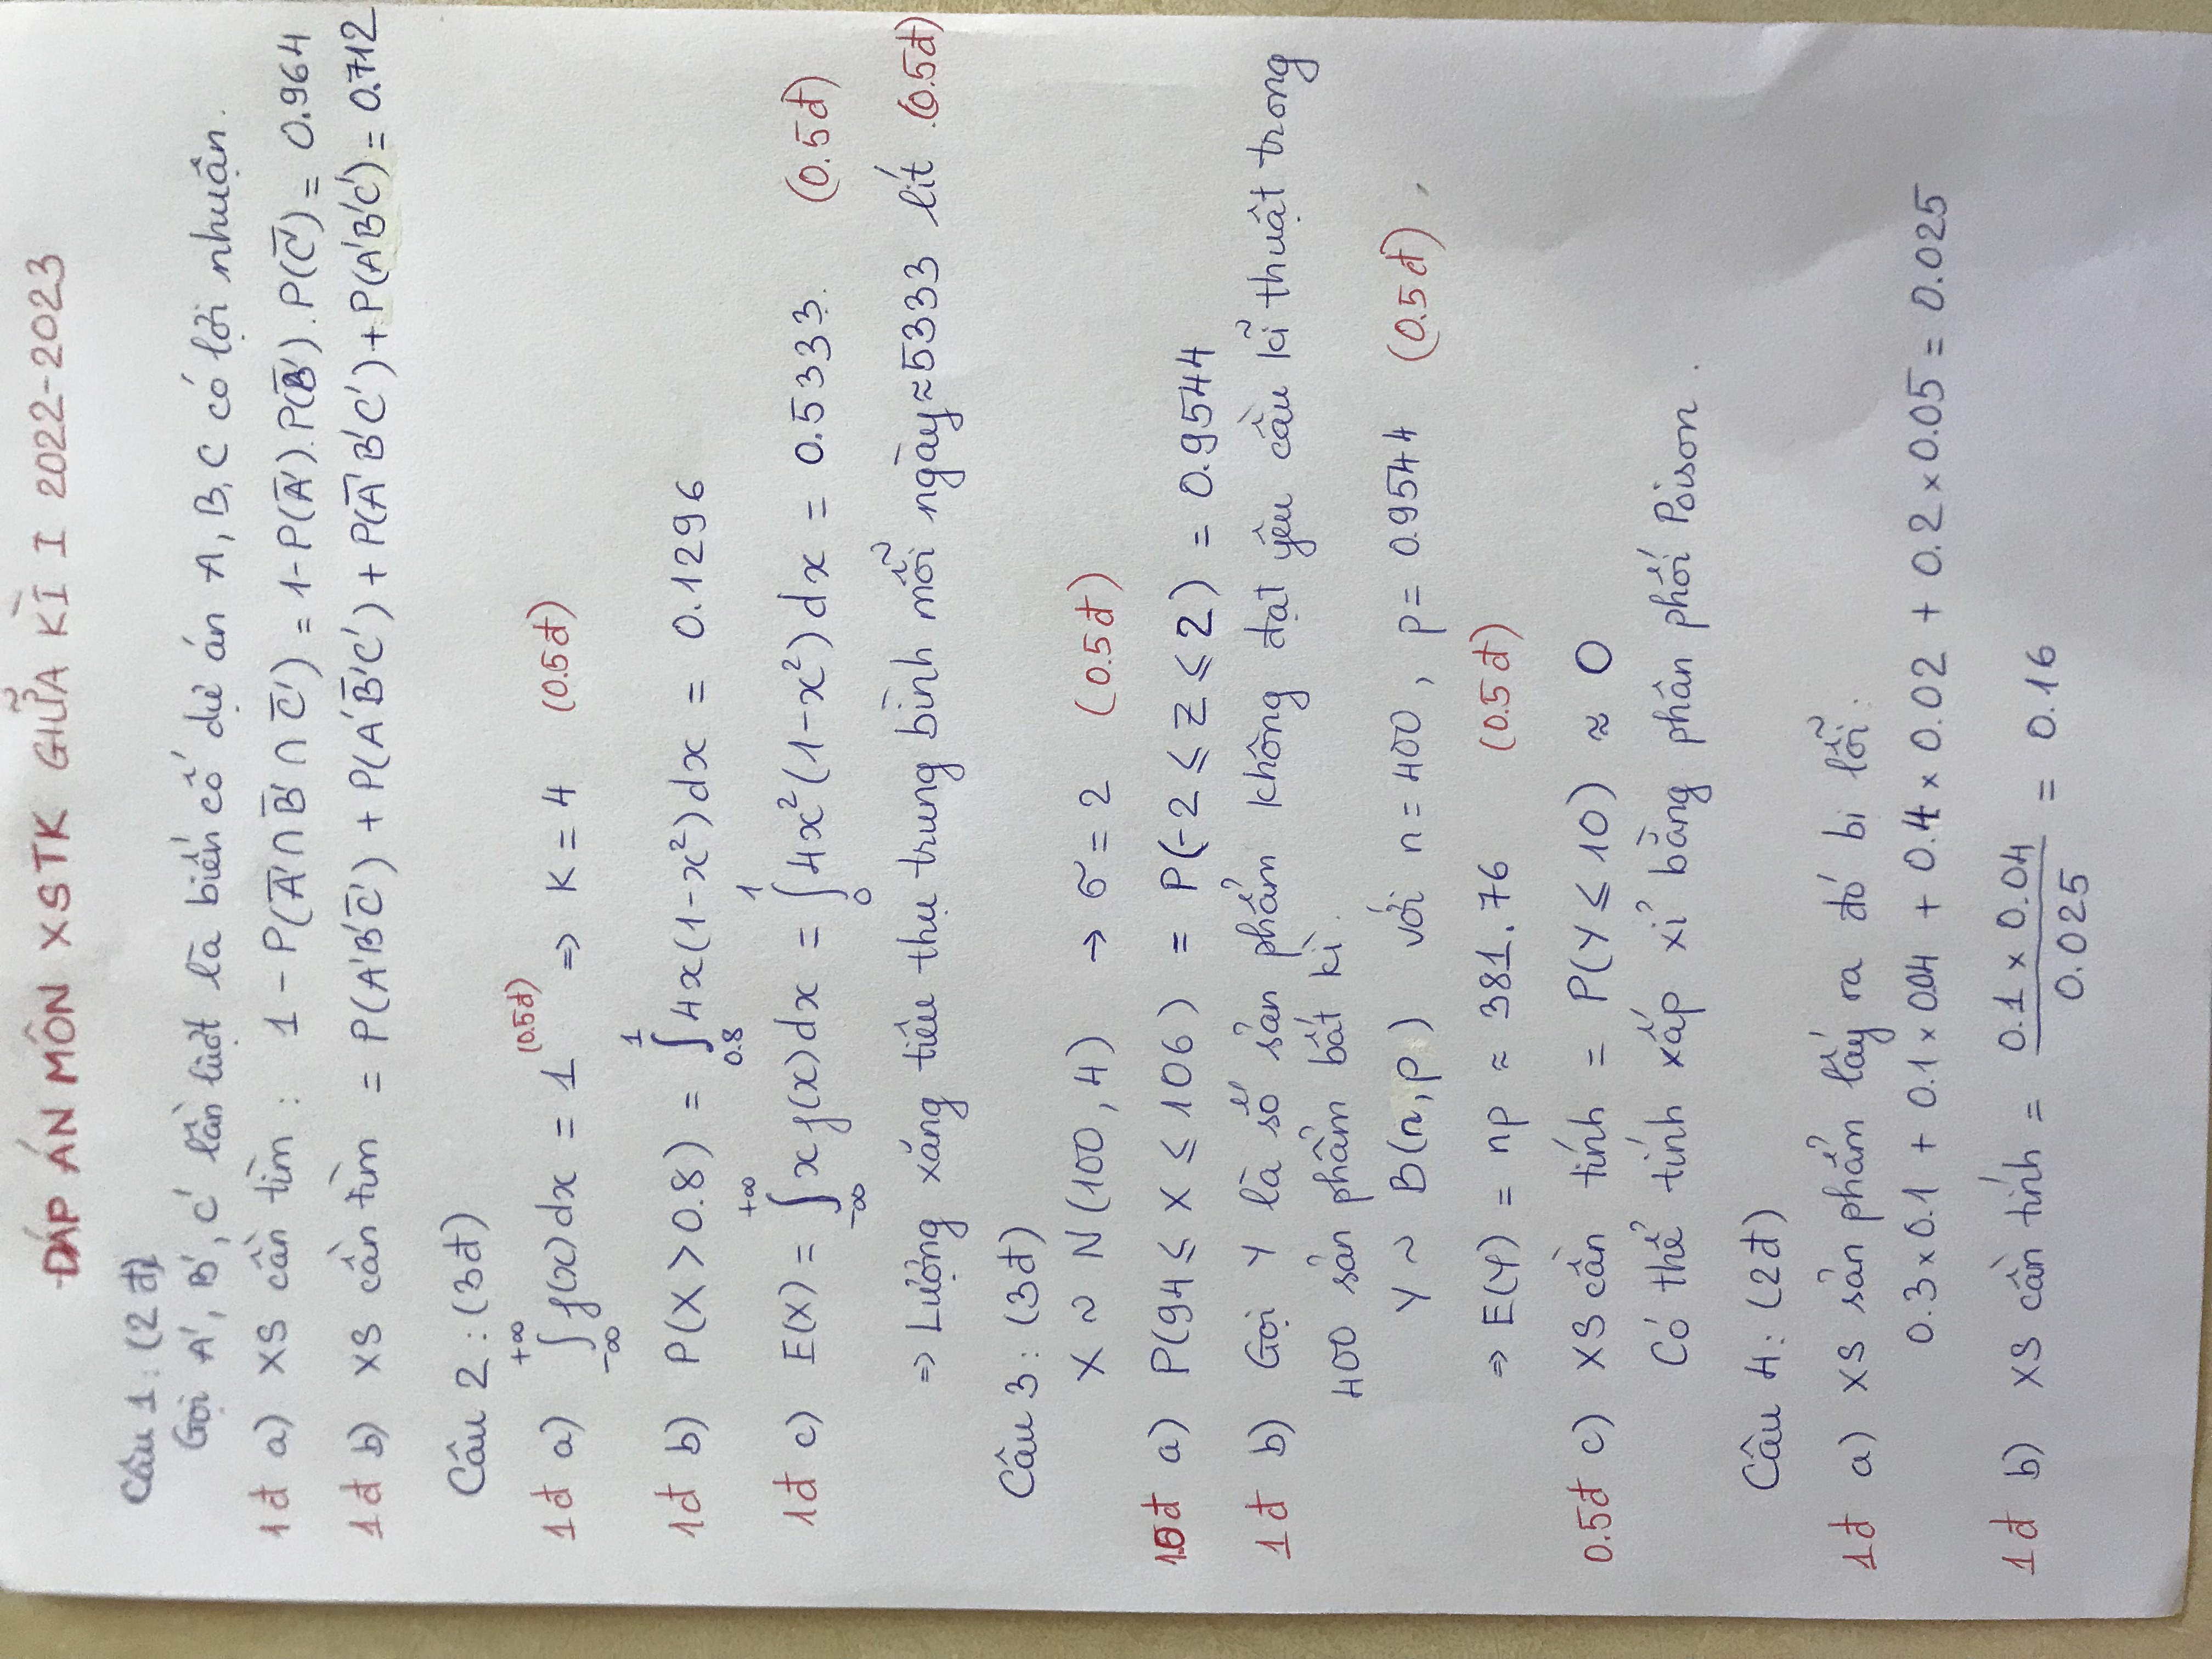 ĐÁP ÁN MÔN XSTK GIỮA KÌ I 2022-2023
Câu 1: (2 đ)
Gọi A', B', C' lần lượt là biến cố dự án A, B, C có lợi nhuận.
1đ a) XS cần tìm : 1 - P(A̅' ∩ B̅' ∩ C̅') = 1 - P(A̅'). P(B̅'). P(C̅') = 0.964
1đ b) XS cần tìm = P(A'B'C̅') + P(A'B̅'C') + P(A̅'B'C') + P(A'B'C') = 0.712
Câu 2 : (3đ)
1đ a) ∫_{-∞}^{+∞} f(x)dx = 1 (0.5đ) => K = 4 (0.5đ)
1đ b) P(X > 0.8) = ∫_{0.8}^{1} 4x(1-x²)dx = 0.1296
1đ c) E(X) = ∫_{-∞}^{+∞} x f(x)dx = ∫_{0}^{1} 4x²(1-x²)dx = 0.5333. (0.5đ)
=> Lượng xăng tiêu thụ trung bình mỗi ngày ≈ 5333 lít. (0.5đ)
Câu 3 : (3đ)
X ~ N(100, 4) → σ = 2 (0.5đ)
1.0đ a) P(94 ≤ X ≤ 106) = P(-2 ≤ Z ≤ 2) = 0.9544
1đ b) Gọi Y là số sản phẩm không đạt yêu cầu kĩ thuật trong
400 sản phẩm bất kì.
Y ~ B(n, p) với n = 400, p = 0.9544 (0.5đ)
=> E(Y) = np ≈ 381.76 (0.5đ)
0.5đ c) XS cần tính = P(Y ≤ 10) ≈ 0
Có thể tính xấp xỉ bằng phân phối Poison.
Câu 4: (2đ)
1đ a) XS sản phẩm lấy ra đó bị lỗi.
0.3 x 0.1 + 0.1 x 0.04 + 0.4 x 0.02 + 0.2 x 0.05 = 0.025
1đ b) XS cần tính = (0.1 x 0.04)/0.025 = 0.16